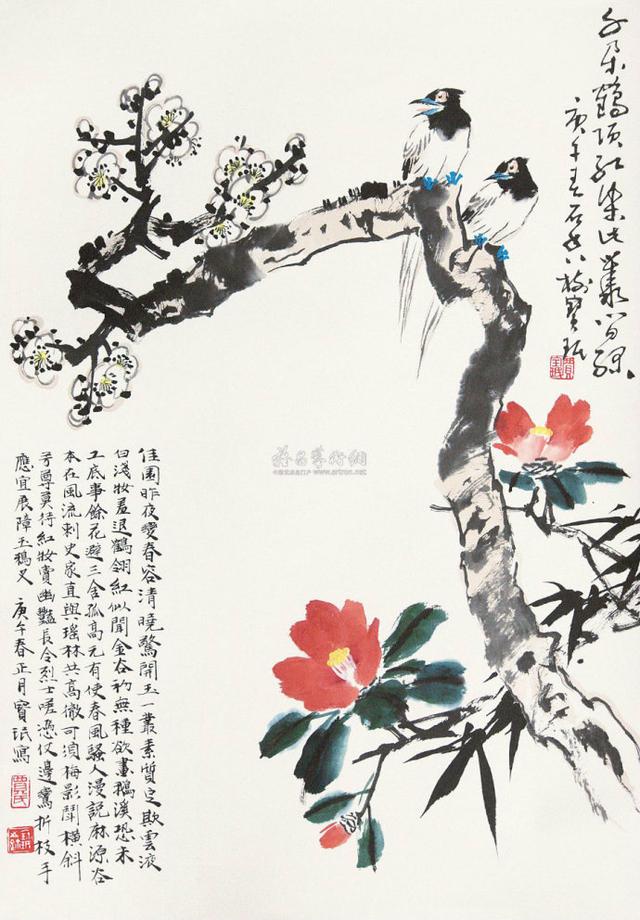 千朵鶴頂紅染此叢間綠
庚午春
寶珉
佳園昨夜變春容清曉驚開玉一叢素質定欺雲液
白淺妝羞退鶴翎紅似聞金谷初無種欲畫鵝溪恐未
工底事餘花避三舍孤高元有使春風騷人漫說麻源谷
本在風流刺史家直與瑤林共高徹可須梅影鬥橫斜
芳尊莫待紅妝賞幽豔長令烈士嗟憑仗邊鸞折枝手
應宜展障玉鴉叉 庚午春正月寶珉寫
賈氏
雅昌藝術網